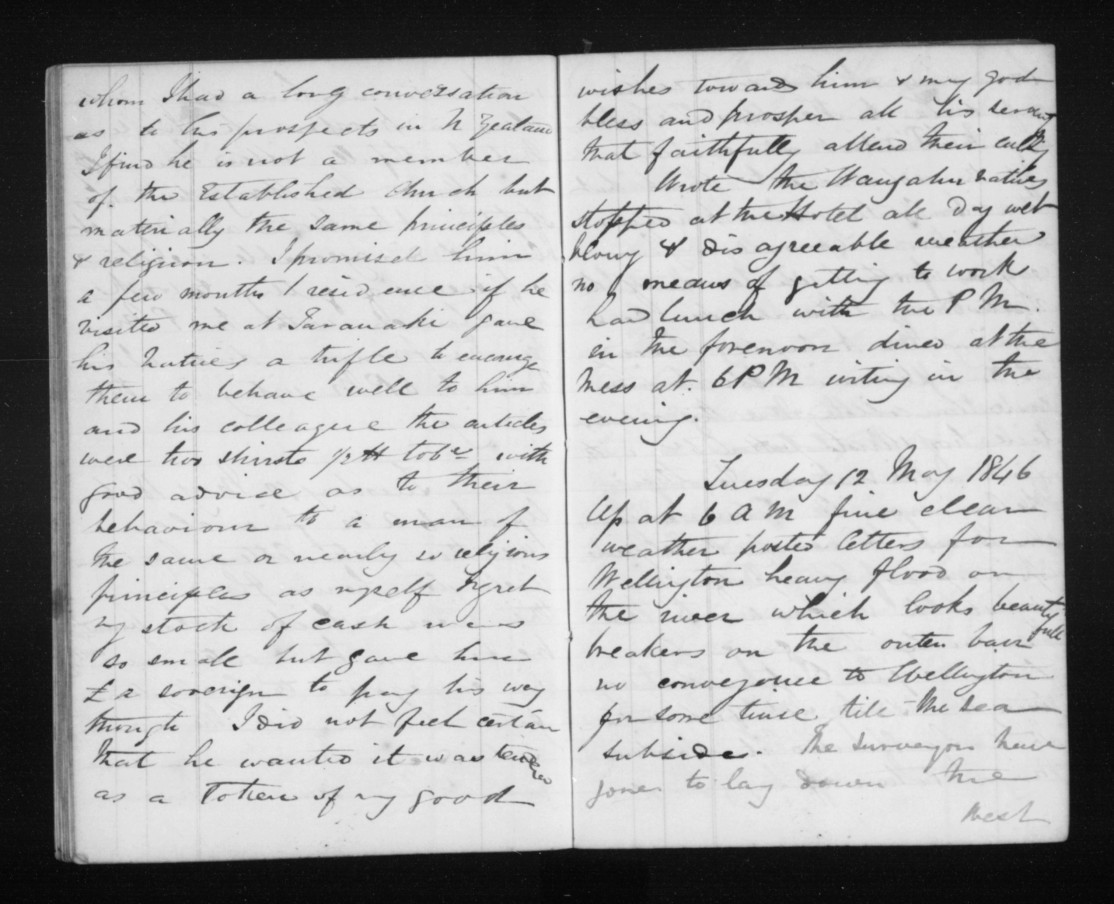 whom I had a long conversation
as to his prospects in N Zealand
I find he is not a member
of the Established Church but
materially the same principles
& religion. I promised him
a few months residence if he
visited me at Taranaki gave
his Natives a trifle to encourge
them to behave well to him
and his colleague the articles
were two shirsts 1/2 lb tobc with
good advice as to their
behaviour to a man of
the same or nearly so religious
principles as myself regret
my stock of cash was
so small but gave him
£ a sovereign to pay his way
though I did not feel certain
that he wanted it was tendered
as a Token of my good
wishes towards him & may god
bless and prosper all his servants
that faithfully attend their
Wrote the natives
stopped at the Hotel all day wet
blowy & disagreeable weather
no means of getting to work
had lunch with the P M.
in the forenoon dined at the
Mess at 6 P M writing in the
evening.
Tuesday 12 May 1846
Up at 6 A M fine clear
weather posted letters for
Wellington heavy flood on
the river which looks beautyfull
breakers on the outer bar
no conveyance to Wellington
for some time till the sea
subside. The Surveyors have
gone to lay down the
West